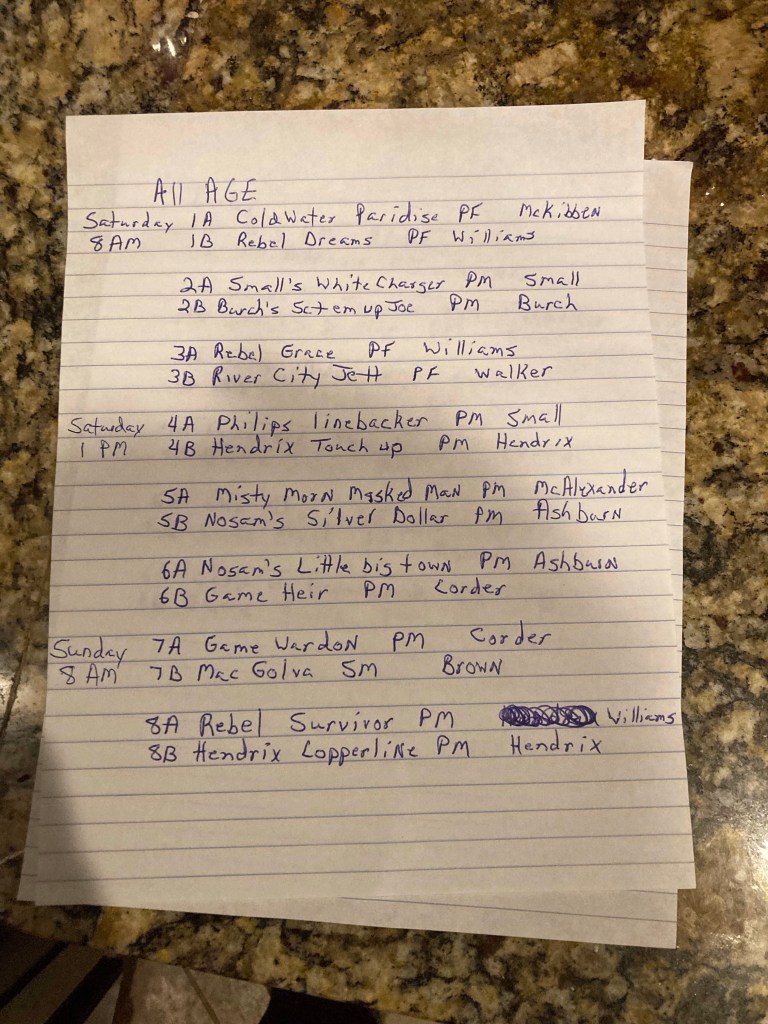 All AGE
Saturday 1A ColdWater Paridise PF McKibben
8 AM 1B Rebel Dreams PF Williams
2A Small's White Charger PM Small
2B Burch's Setem up Joe PM Burch
3A Rebel Grace PF Williams
3B River City Jett PF Walker
Saturday 4A Philips linebacker PM Small
1 PM 4B Hendrix Touch up PM Hendrix
5A Misty Morn Masked Man PM McAlexander
5B Nosam's Silver Dollar PM Ashburn
6A Nosam's Little big town PM Ashburn
6B Game Heir PM Corder
Sunday 7A Game Wardon PM Corder
8 AM 7B Mac Golva SM Brown
8A Rebel Survivor PM Williams
8B Hendrix Copperline PM Hendrix